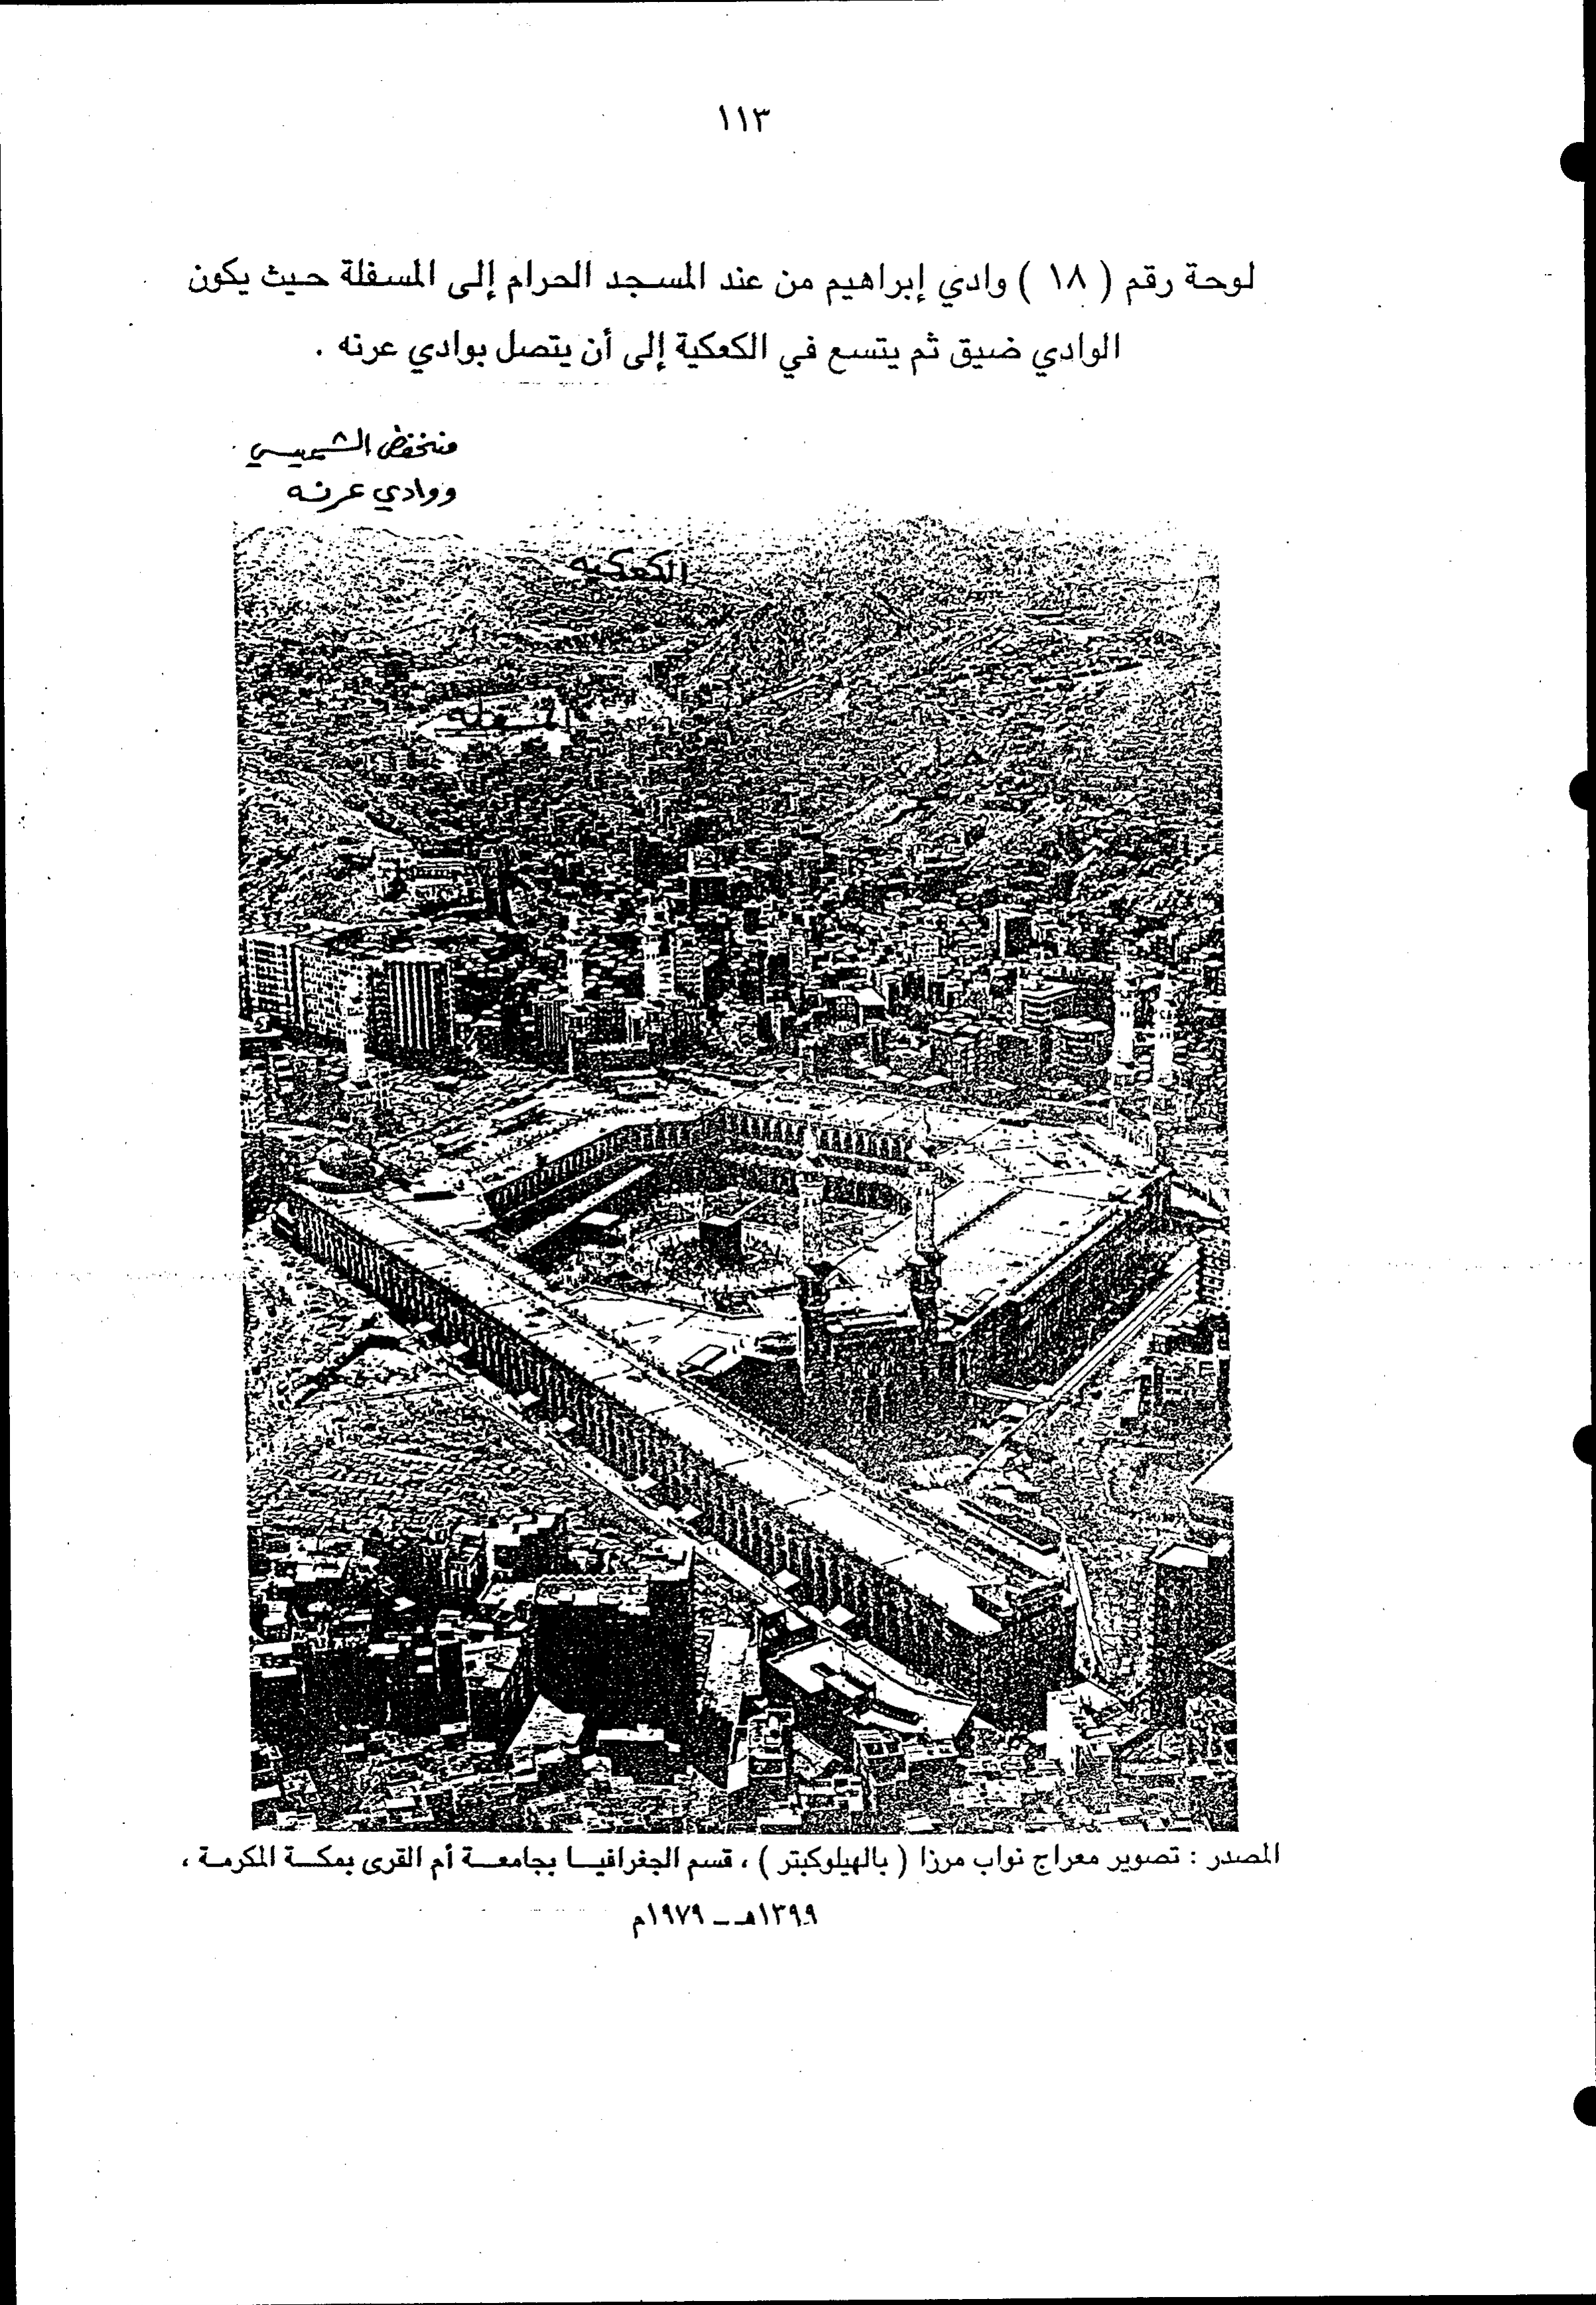 ١١٣
لوحة رقم ( ١٨ ) وادي إبراهيم من عند المسجد الحرام إلى المسفلة حيث يكون
الوادي ضيق ثم يتسع في الكعكية إلى أن يتصل بوادي عرنه .
منخفض الشميسي
ووادي عرنه
الكعكيه
المسفله
المصدر : تصوير معراج نواب مرزا ( بالهيلوكبتر ) ، قسم الجغرافيا بجامعة أم القرى بمكة المكرمة ،
١٣٩٩هـ - ١٩٧٩م